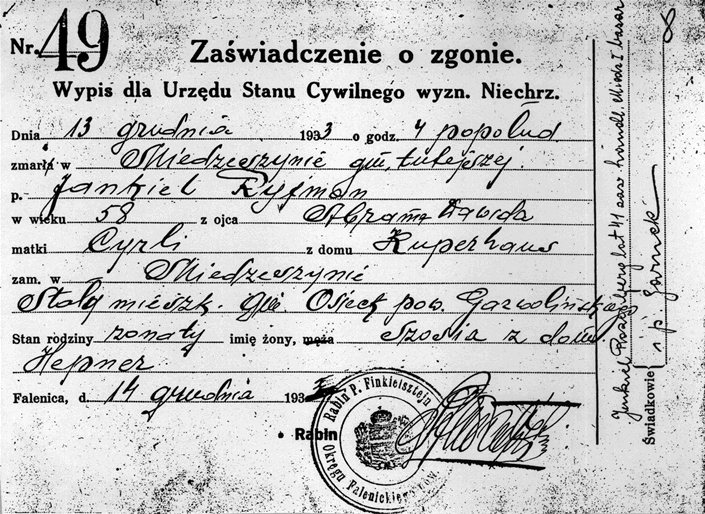 Nr. 49
Zaświadczenie o zgonie.
Wypis dla Urzędu Stanu Cywilnego wyzn. Niechrz.
Dnia 13 grudnia 1933 o godz. 4 popołud
zmarł w Miedzeszynie gm. tutejszej.
p. Jankiel Ryfman
w wieku 58 z ojca Abrama Dawida
matki Cyrli z domu Kuperhaus
zam. w Miedzeszynie
Stały mieszk. gm. Osieck pow. Garwolińskiego
Stan rodziny żonaty imię żony, męża Szosia z domu
Hepner
Falenica, d. 14 grudnia 193
Rabin
Rabin P. Finkielsztejn
Okręgu Falenickiego
Świadkowie
Jankiel lat 41 zaw. handl.
8